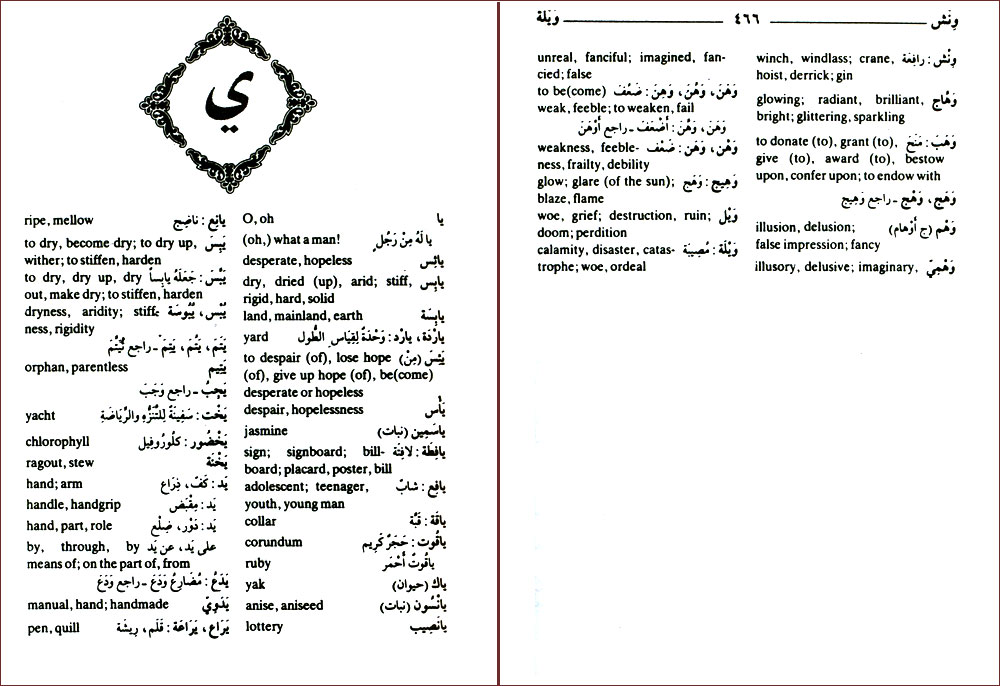 وَيْلة ٤٦٦ وَنْش
وِنْش : رافِعَة winch, windlass; crane,
hoist, derrick; gin
وَهّاج glowing; radiant, brilliant,
bright; glittering, sparkling
وَهَبَ : مَنَحَ to donate (to), grant (to),
give (to), award (to), bestow
upon, confer upon; to endow with
وَهَج، وَهْج ـ راجع وَهِيج
وَهْم (ج أَوْهام) illusion, delusion;
false impression; fancy
وَهْمِيّ illusory, delusive; imaginary,
unreal, fanciful; imagined, fan-
cied; false
وَهَنَ، وَهُنَ، وَهِنَ : ضَعُفَ to be(come)
weak, feeble; to weaken, fail
وَهَنَ، وَهَّنَ : أَضْعَفَ ـ راجع أَوْهَنَ
وَهْن، وَهَن : ضَعْف weakness, feeble-
ness, frailty, debility
وَهِيج : وَهَج glow; glare (of the sun);
blaze, flame
وَيْل woe, grief; destruction, ruin;
doom; perdition
وَيْلَة : مُصِيبَة calamity, disaster, catas-
trophe; woe, ordeal
ي
يا O, oh
يا لَهُ مِنْ رَجُلٍ (oh,) what a man!
يائِس desperate, hopeless
يابِس dry, dried (up), arid; stiff,
rigid, hard, solid
يابِسَة land, mainland, earth
يارْدَة، يارْد : وَحْدَةٌ لِقِيَاسِ الطُّول yard
يَئِسَ (مِنْ) to despair (of), lose hope
(of), give up hope (of), be(come)
desperate or hopeless
يَأْس despair, hopelessness
ياسَمِين (نبات) jasmine
يافِطَة : لافِتَة sign; signboard; bill-
board; placard, poster, bill
يافِع : شابّ adolescent; teenager,
youth, young man
ياقَة : قَبَّة collar
ياقُوت : حَجَرٌ كَرِيم corundum
ياقُوتٌ أَحْمَر ruby
ياك (حيوان) yak
يانْسُون (نبات) anise, aniseed
يانَصِيب lottery
يانِع : ناضِج ripe, mellow
يَبِسَ to dry, become dry; to dry up,
wither; to stiffen, harden
يَبَّسَ : جَعَلَهُ يابِساً to dry, dry up, dry
out, make dry; to stiffen, harden
يُبْس، يُبُوسَة dryness, aridity; stiff-
ness, rigidity
يَتَمَ، يَتُمَ، يَتِمَ ـ راجع تَيَتَّمَ
يَتِيم orphan, parentless
يَجِبُ ـ راجع وَجَبَ
يَخْت : سَفِينَةٌ لِلتَّنَزُّهِ والرِّيَاضَةِ yacht
يَخْضُور : كلُورُوفِيل chlorophyll
يَخْنَة ragout, stew
يَد : كَفّ، ذِرَاع hand; arm
يَد : مِقْبَض handle, handgrip
يَد : دَوْر، ضِلْع hand, part, role
على يَد، عن يَد by, through, by
means of; on the part of, from
يَدَعُ : مُضَارِعُ وَدَعَ ـ راجع وَدَعَ
يَدَوِيّ manual, hand; handmade
يَرَاع، يَرَاعَة : قَلَم، رِيشَة pen, quill